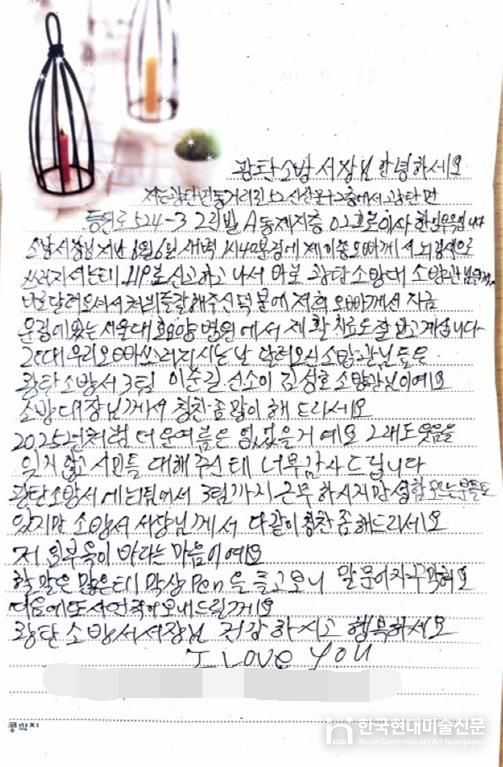 광탄소방서장님 안녕하세요
저는광탄면 에서광탄면
등원로524-3 A동 지층 02호로이사
소방서장님지난 1월6일새벽 1시40분경에 오빠께서 뇌경색으로
쓰러지셔는데 119로신고하고나서 바로 광탄소방대 소방관님
달려오셔서처치를잘해주신덕분에 저희 오빠께서 지금
운정에있는서울대효요양병원에서 재활치료도잘받고계십니다
근데우리오빠쓰러지시는날 달려오신소방관님들은
광탄소방서3팀 이순길 선소이 김성호소방관님이예요
소방대장님께서칭찬좀많이해드리세요
2025년처럼 더운여름은 없었을거예요 그래도웃음을
잊지않고시민들 대해주신테 너무감사드립니다
광탄소방서에 팀에서3팀까지근무하시지만 모르는분들도
있지만 소방서서장님께서 다같이칭찬좀해드리세요
저 일부육이바라는마음이예요
할말은많은데막상Pen을들고보니 말문이
다음에또사연적어보내드릴께요
광탄소방서서장님 건강하시고행복하세요
I LOVE YOU
콩깍지
한국현대미술신문
Korea Contemporary Art Newspaper